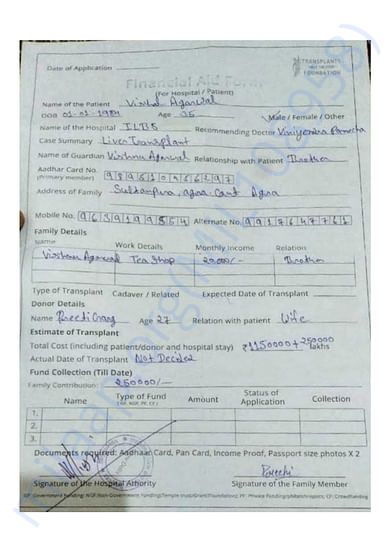 TRANSPLANTS
HELP THE POOR
FOUNDATION
Date of Application
Financial Aid Form
(For Hospital / Patient)
Name of the Patient Vishal Agarwal
DOB 01-01-1984 Age 35 Male / Female / Other
Name of the Hospital ILBS Recommending Doctor
Case Summary Liver Transplant
Name of Guardian Vishnu Agarwal Relationship with Patient Brother
Aadhar Card No.
(Primary member)
Address of Family Sultanpura, agra Cant Agra
Mobile No. Alternate No.
Family Details
Name Work Details Monthly Income Relation
Vishnu Agarwal Tea Shop 20,000/- Brother
Type of Transplant Cadaver / Related Expected Date of Transplant
Donor Details
Name Preeti Age 27 Relation with patient Wife
Estimate of Transplant
Total Cost (including patient/donor and hospital stay) ₹1150000+250000 lakhs
Actual Date of Transplant Not Decided
Fund Collection (Till Date)
Family Contribution: 250000/-
Name Type of Fund Amount Status of Application Collection
( GF, NGF, PF, CF )
1.
2.
3.
Documents required: Adhaar Card, Pan Card, Income Proof, Passport size photos X 2
Signature of the Hospital Athority Signature of the Family Member
GF: Government Funding; NGF:Non-Government Funding(Temple trust/Grant/Foundation); PF: Private Funding(philanthropist); CF: Crowdfunding